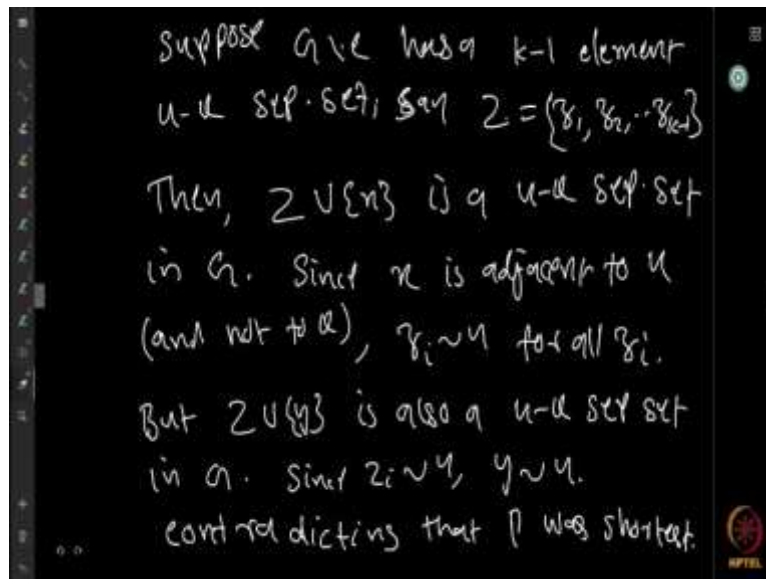 Suppose G\e has a k-1 element
u-v sep. set, say Z = {z₁, z₂, ... z_{k-1}}
Then, Z ∪ {x} is a u-v sep. set
in G. Since x is adjacent to u
(and not to v), z_i ~ u for all z_i.
But Z ∪ {y} is also a u-v sep set
in G. Since z_i ~ u, y ~ u.
contradicting that P was shortest.
NPTEL